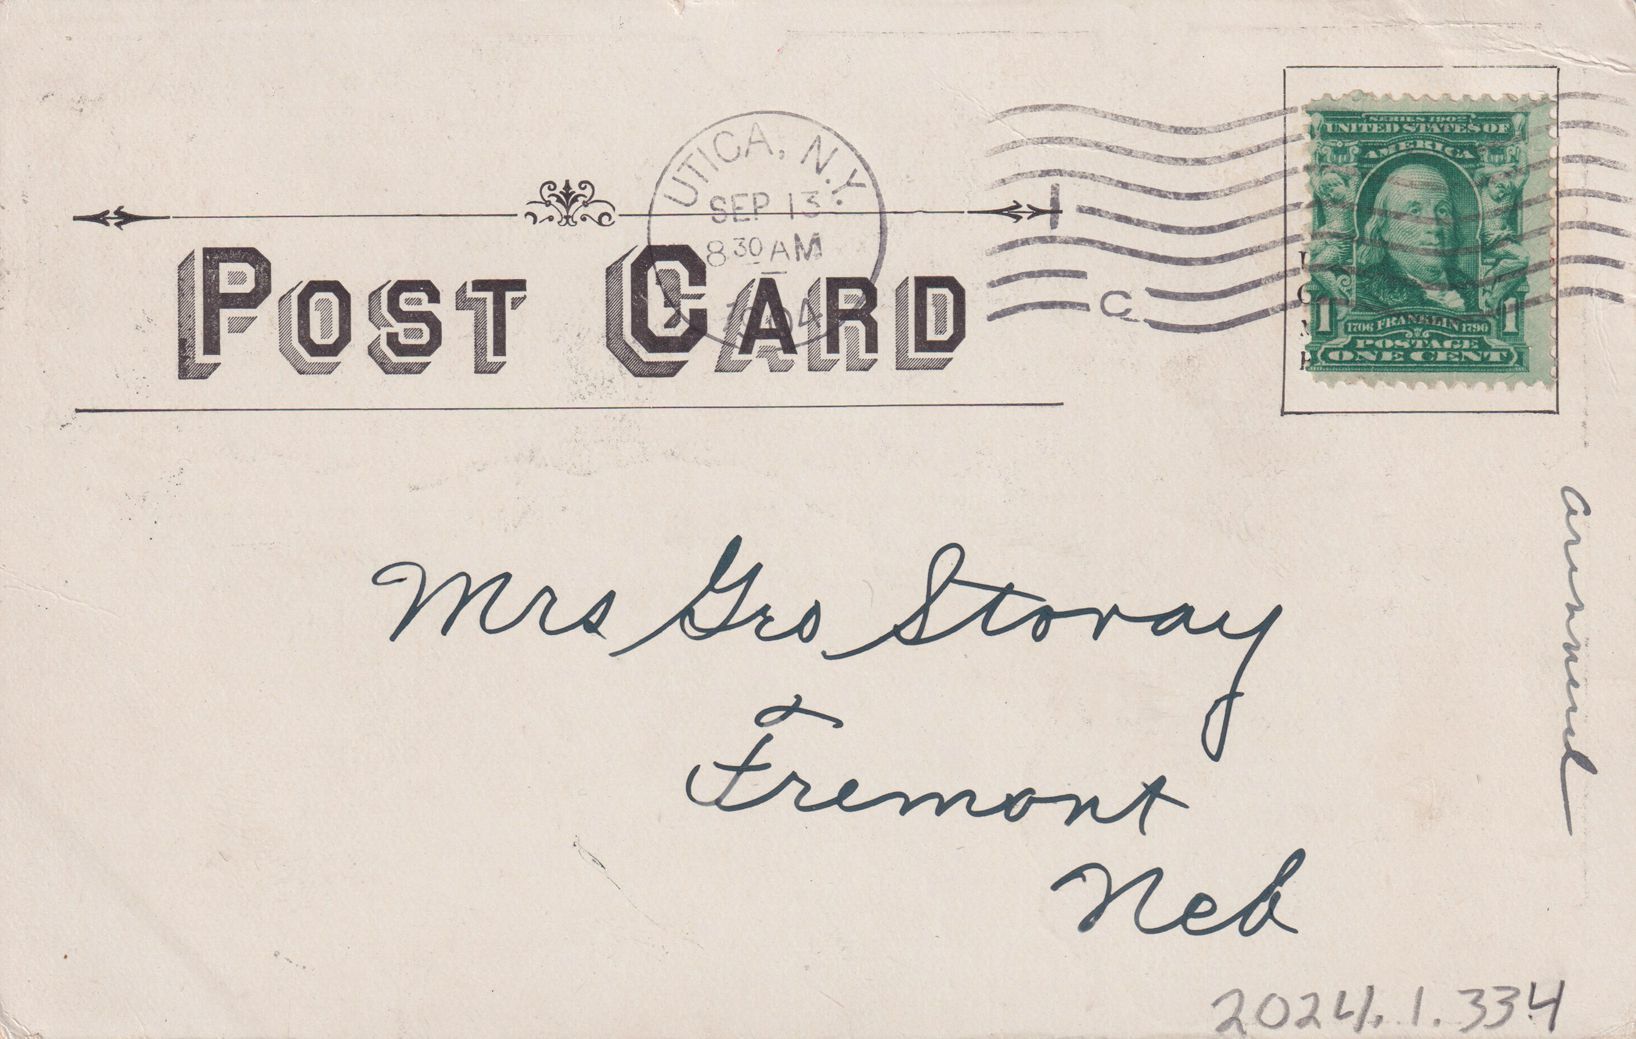 UTICA, N.Y.
SEP 13
8 30 AM
1904
POST CARD
1
C
SERIES 1902
UNITED STATES OF
AMERICA
1 1
1706 FRANKLIN 1790
POSTAGE
ONE CENT
Mrs Geo Stovay
Fremont
Neb
2024.1.334